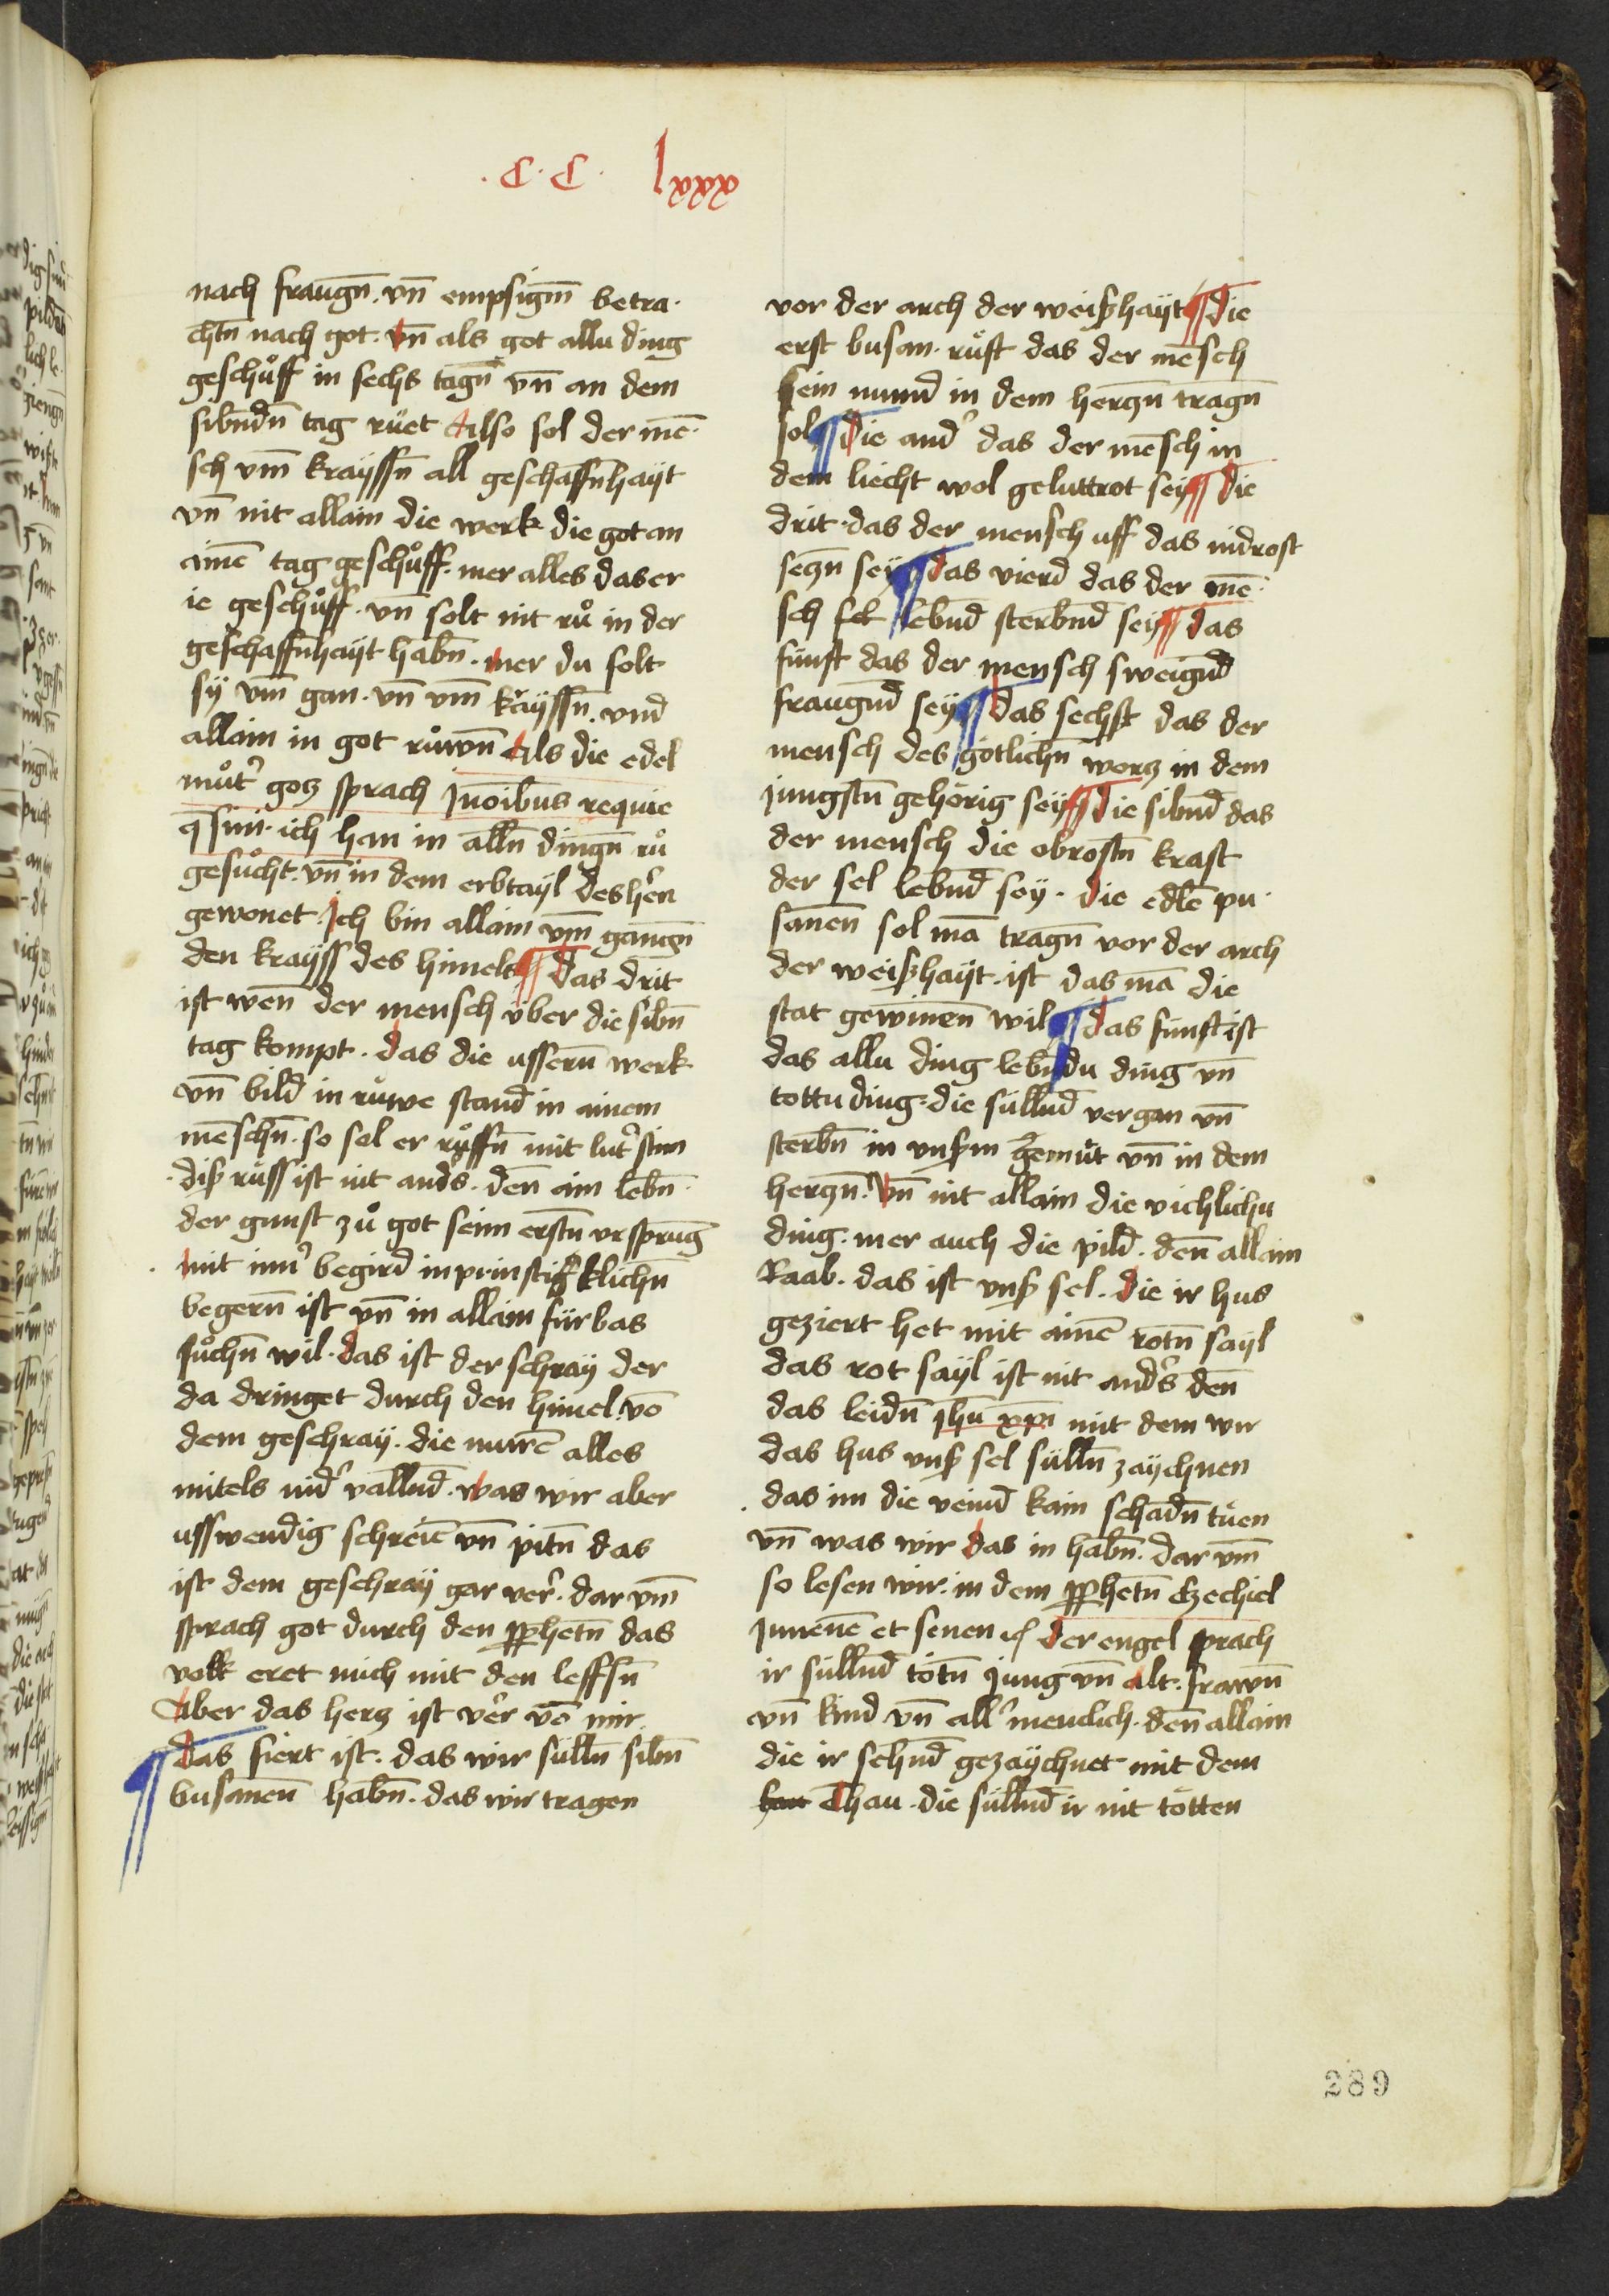 .C.C. lxxx
nach fraugn̄. vn̄ empsigm̄ betra-
chtn̄ nach got. vn̄ als got allu ding
geschůff in sechs tagn̄ vn̄ an dem
sibndn̄ tag rüet Also sol der mē-
sch vm̄ kraÿssn̄ all geschaffn̄haÿt
vn̄ nit allain die werk die got an
aimē tag geschůff. mer alles das er
ie geschůff. vn̄ solt nit rů in der
geschaffn̄haÿt habn̄. mer du solt
sÿ vm̄ gan. vn̄ vm̄ käÿssn̄. vnd
allain in got růwn̄ Als die edel
můt͛ gotz sprach Jn oībus requie
q̄siui. ich han in alln̄ dingn̄ rů
gesůcht. vn̄ in dem erbtayl des hēn
gewonet. Ich bin allain vm̄ gangn̄
den kraÿss des himels ¶ das drit
ist wen̄ der mensch über die sibn̄
tag kompt. das die ussern̄ werk
vn̄ bild in rüwe stand in ainem
mēschn̄. so sol er růffn̄ mit lut͛ stim
diß růff ist nit and͛s. den̄ ain lebn̄
der gunst zů got seim erstn̄ vrsprūg
mit inn͛ begird in prinstigklichn̄
begern̄ ist vn̄ in allain fürbas
sůchn̄ wil. das ist der schraÿ der
da dringet durch den himel. vō
dem geschraÿ. die murē alles
mitels nid͛ vallnd̄. was wir aber
usswendig schreiē vn̄ pitn̄ das
ist dem geschraÿ gar ver͛. dar vm̄
sprach got durch den ꝓphetn̄ das
volk eret mich mit den leffsn̄
Aber das hertz ist ver͛ vō mir.
¶ das fiert ist. das wir sülln̄ sibn̄
busanen̄ habn̄. das wir tragen
vor der arch der weißhaÿt ¶ die
erst busan. rüft das der mēsch
sein mund in dem hertzn̄ tragn̄
sol ¶ die and͛ das der mēsch in
dem liecht wol geluttrot seÿ ¶ die
drit. das der mensch uff das nidrost
setzn̄ seÿ ¶ das vierd das der mē-
sch sel lebnd̄ sterbnd̄ seÿ ¶ das
fünft das der mensch sweignd̄
fraugnd̄ seÿ ¶ das sechst das der
mensch des götlichn̄ wortz in dem
jungstn̄ gehörig seÿ ¶ die sibnd̄ das
der mensch die obrostn̄ kraft
der sel lebnd̄ seÿ. die edlē pu-
sanen̄ sol mā tragn̄ vor der arch
der weißhaÿt. ist das mā die
stat gewinen̄ wil ¶ das fünft ist
das allu ding lebndu ding vn̄
tottu ding. die süllnd̄ vergan vn̄
sterbn̄ in vnßm gemüt vn̄ in dem
hertzn̄. vn̄ nit allain die vichlichu
ding. mer auch die pild. den̄ allain
Raab. das ist vnß sel. die ir hus
geziert het mit aimē rotn̄ sayl
das rot saÿl ist nit and͛s den̄
das leidn̄ jhū xp̄i mit dem wir
das hus vnß sel sülln̄ zaÿchnen
das im die veind kain schadn̄ tüen
vn̄ was wir das in habn̄. dar vm̄
so lesen wir. in dem ꝓphetn̄ Ezechiel
Juuenē et senen ꝛc der engel sprach
ir süllnd̄ tötn̄ jung vn̄ alt. frawn̄
vn̄ kind vn̄ all͛ menclich. den̄ allain
die ir sehnd̄ gezaÿchnet mit dem
Thau. die süllnd̄ ir nit tötten
289